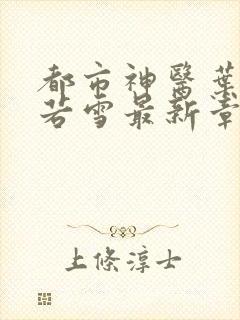 都市神醫葉
若雪最新章
上條淳士